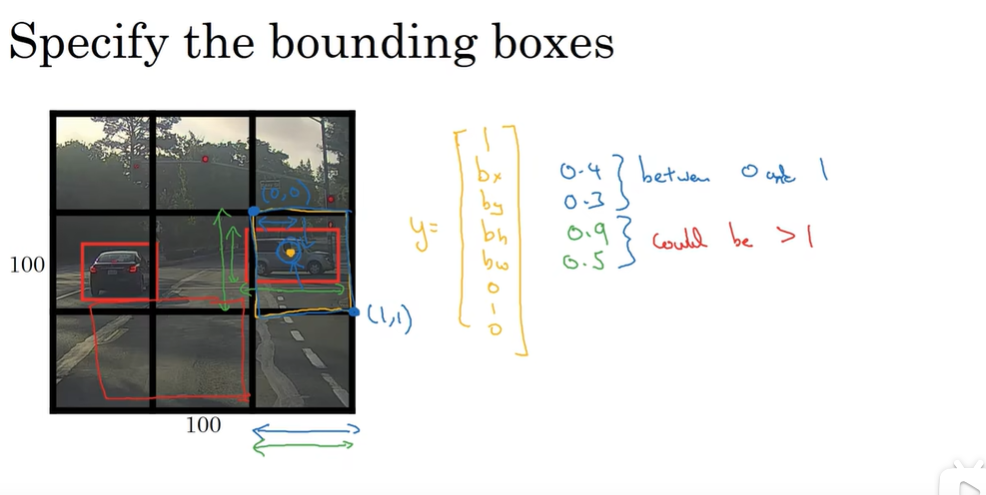 Specify the bounding boxes
(0,0)
100
(1,1)
100
y=
1
bx
by
bh
bw
0
1
0
0.4 } between 0 and 1
0.3
0.9 } could be >1
0.5